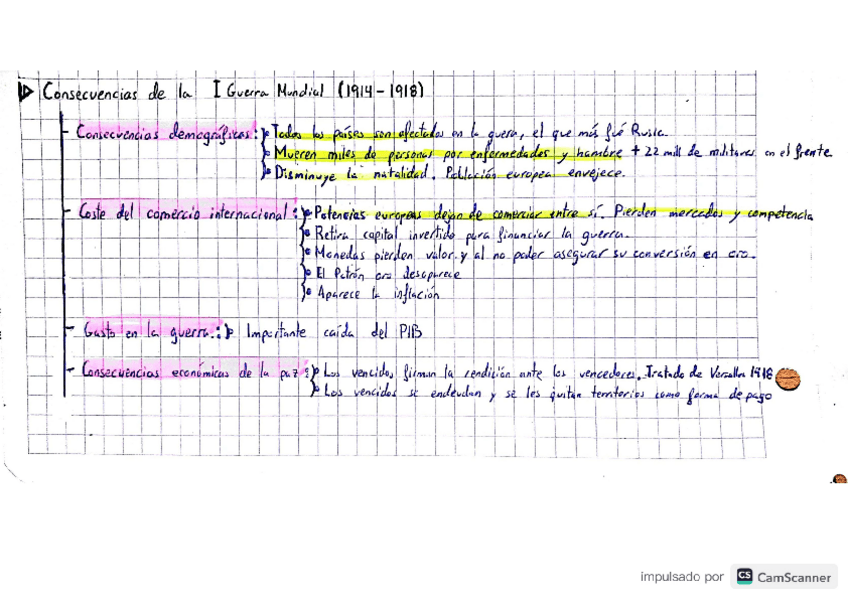 Consecuencias de la I Guerra Mundial (1914-1918)
- Consecuencias demográficas: Todos los países son afectados en la guera, el que más fué Rusia.
Mueren miles de personas por enfermedades y hambre + 22 mill de militares en el frente
Disminuye la natalidad. Población europea envejece.
- Coste del comercio internacional: Potencias europeas dejan de comerciar entre sí. Pierden mercados y competencia
Retira capital invertido para financiar la guerra.
Monedas pierden valor y al no poder asegurar su conversión en oro.
El Patrón oro desaparece
Aparece la inflación
- Gasto en la guerra: Importante caída del PIB
- Consecuencias económicas de la paz: Los vencidos firman la rendición ante los vencedores. Tratado de Versalles 1918
Los vencidos se endeudan y se les quitan territorios como forma de pago
impulsado por CS CamScanner